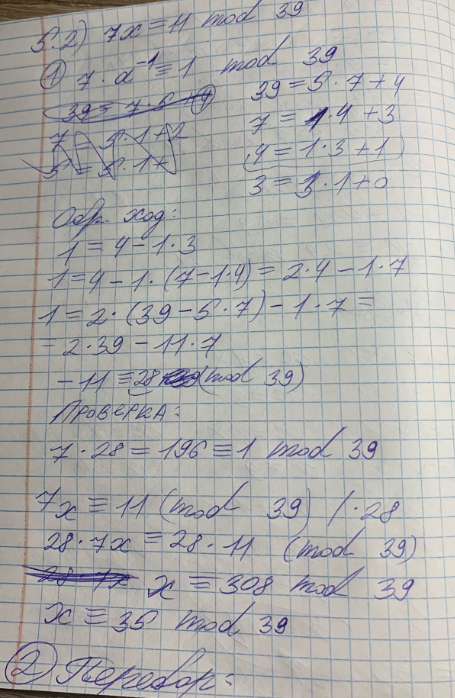 5.2) 7x ≡ 11 mod 39
① 7 · a⁻¹ ≡ 1 mod 39
39 = 5 · 7 + 4
7 = 1 · 4 + 3
(4 = 1 · 3 + 1)
3 = 3 · 1 + 0
Обр. ход:
1 = 4 - 1 · 3
1 = 4 - 1 · (7 - 1 · 4) = 2 · 4 - 1 · 7
1 = 2 · (39 - 5 · 7) - 1 · 7 =
= 2 · 39 - 11 · 7
-11 ≡ 28 (mod 39)
Проверка:
7 · 28 = 196 ≡ 1 mod 39
7x ≡ 11 (mod 39) / · 28
28 · 7x ≡ 28 · 11 (mod 39)
x ≡ 308 mod 39
x ≡ 35 mod 39
② Перебор: